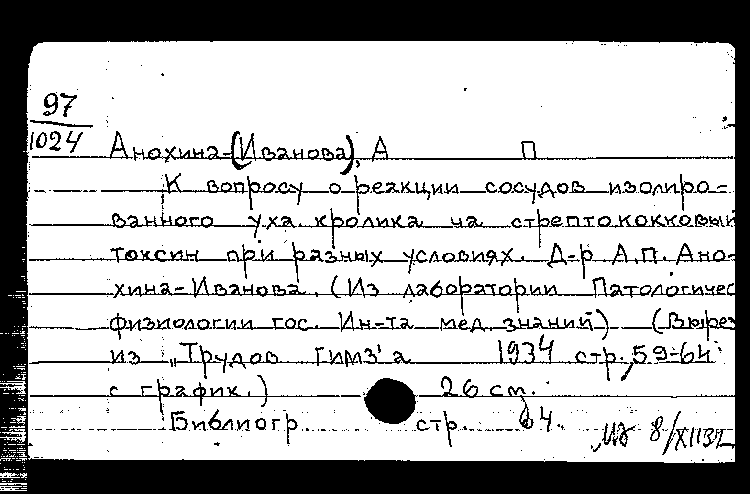 97
1024
Анохина-(Иванова), А П
К вопросу о реакции сосудов изолиро=
ванного уха кролика на стрептококковый
токсин при разных условиях. Д-р А.П. Ано-
хина-Иванова. (Из лаборатории Патологичес
физиологии гос. Ин-та мед. знаний) (Вырез
из „Трудов ГИМЗ'а 1934 стр. 59-64
с график.) 26 см.
Библиогр. стр. 64.